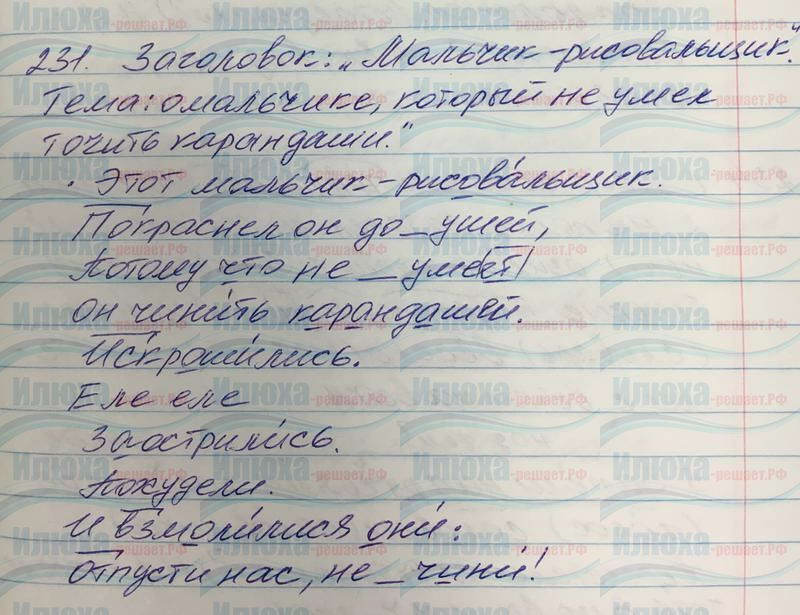 231. Заголовок: „Мальчик-рисовальщик."
Тема: о мальчике, который не умел
точить карандаши."
Этот мальчик-рисовальщик.
Покраснел он до_ушей,
Потому что не _ умеет
он чинить карандашей.
Искрошились.
Еле еле
Заострились.
Похудели.
И взмолилися они:
отпусти нас, не _ чини!
Илюха-решает.РФ